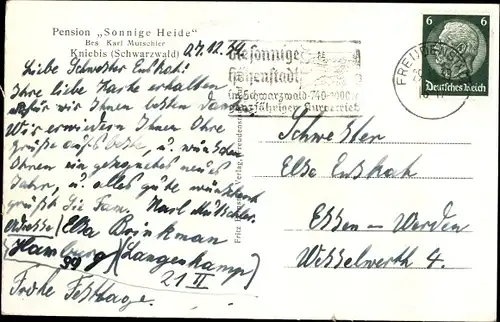 Pension „Sonnige Heide"
Bes. Karl Mutschler
Kniebis (Schwarzwald)
27.12.34
Liebe Schwester Enskat!
Ihre liebe Karte erhalten,
dafür wir Ihnen besten Dank.
Wir erwidern Ihnen Ihre
Grüße aufs beste, u. wünschen
Ihnen ein gesegnetes neues
Jahr, u. alles gute wünschend
grüßt Sie Fam. Karl Mutschler.
Adresse Elsa Brinkman
Hamburg 39 (Langenkamp)
21 II
Frohe Festtage.
Die sonnige
Höhenstadt
im Schwarzwald 740-1000
ganzjähriger Kurbetrieb
FREUDENSTADT
6 6
Deutsches Reich
Schwester
Else Enskat
Essen - Werden
Wesselswerth 4.